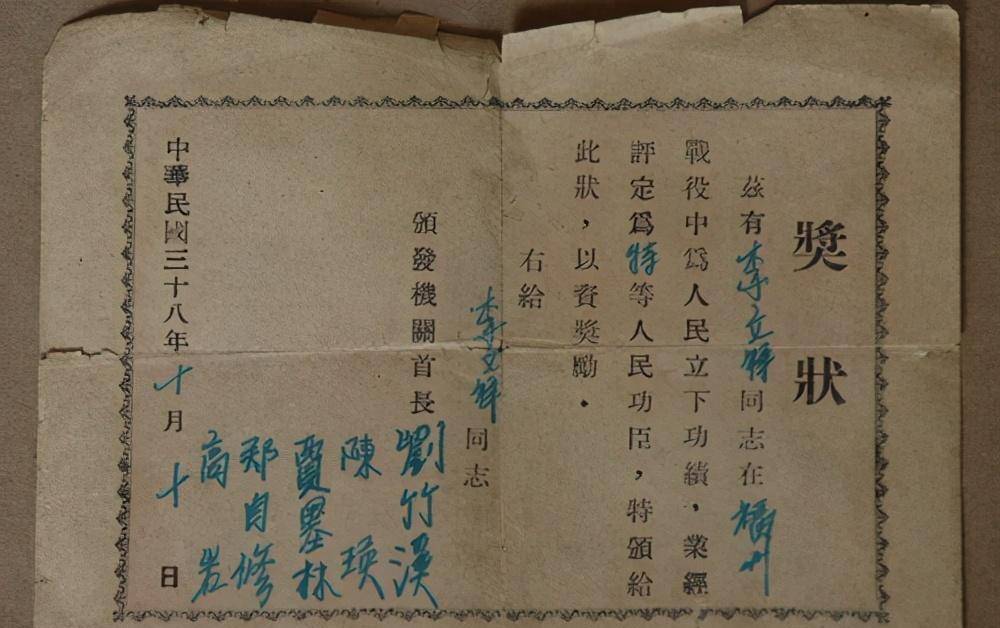 獎狀
茲有李立祥同志在
戰役中爲人民立下功績,業經
評定爲特等人民功臣,特頒給
此狀,以資獎勵.
右給
李立祥同志
頒發機關首長劉竹溪
陳瑛
賈墨林
郑自修
高岩
中華民國三十八年十月十日